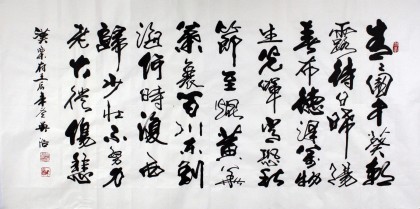 青々園中葵朝
露待日晞陽
春布德澤萬物
生光輝常恐秋
節至焜黃華
葉衰百川東到
海何時復西
歸少壯不努力
老大徒傷悲
樂府